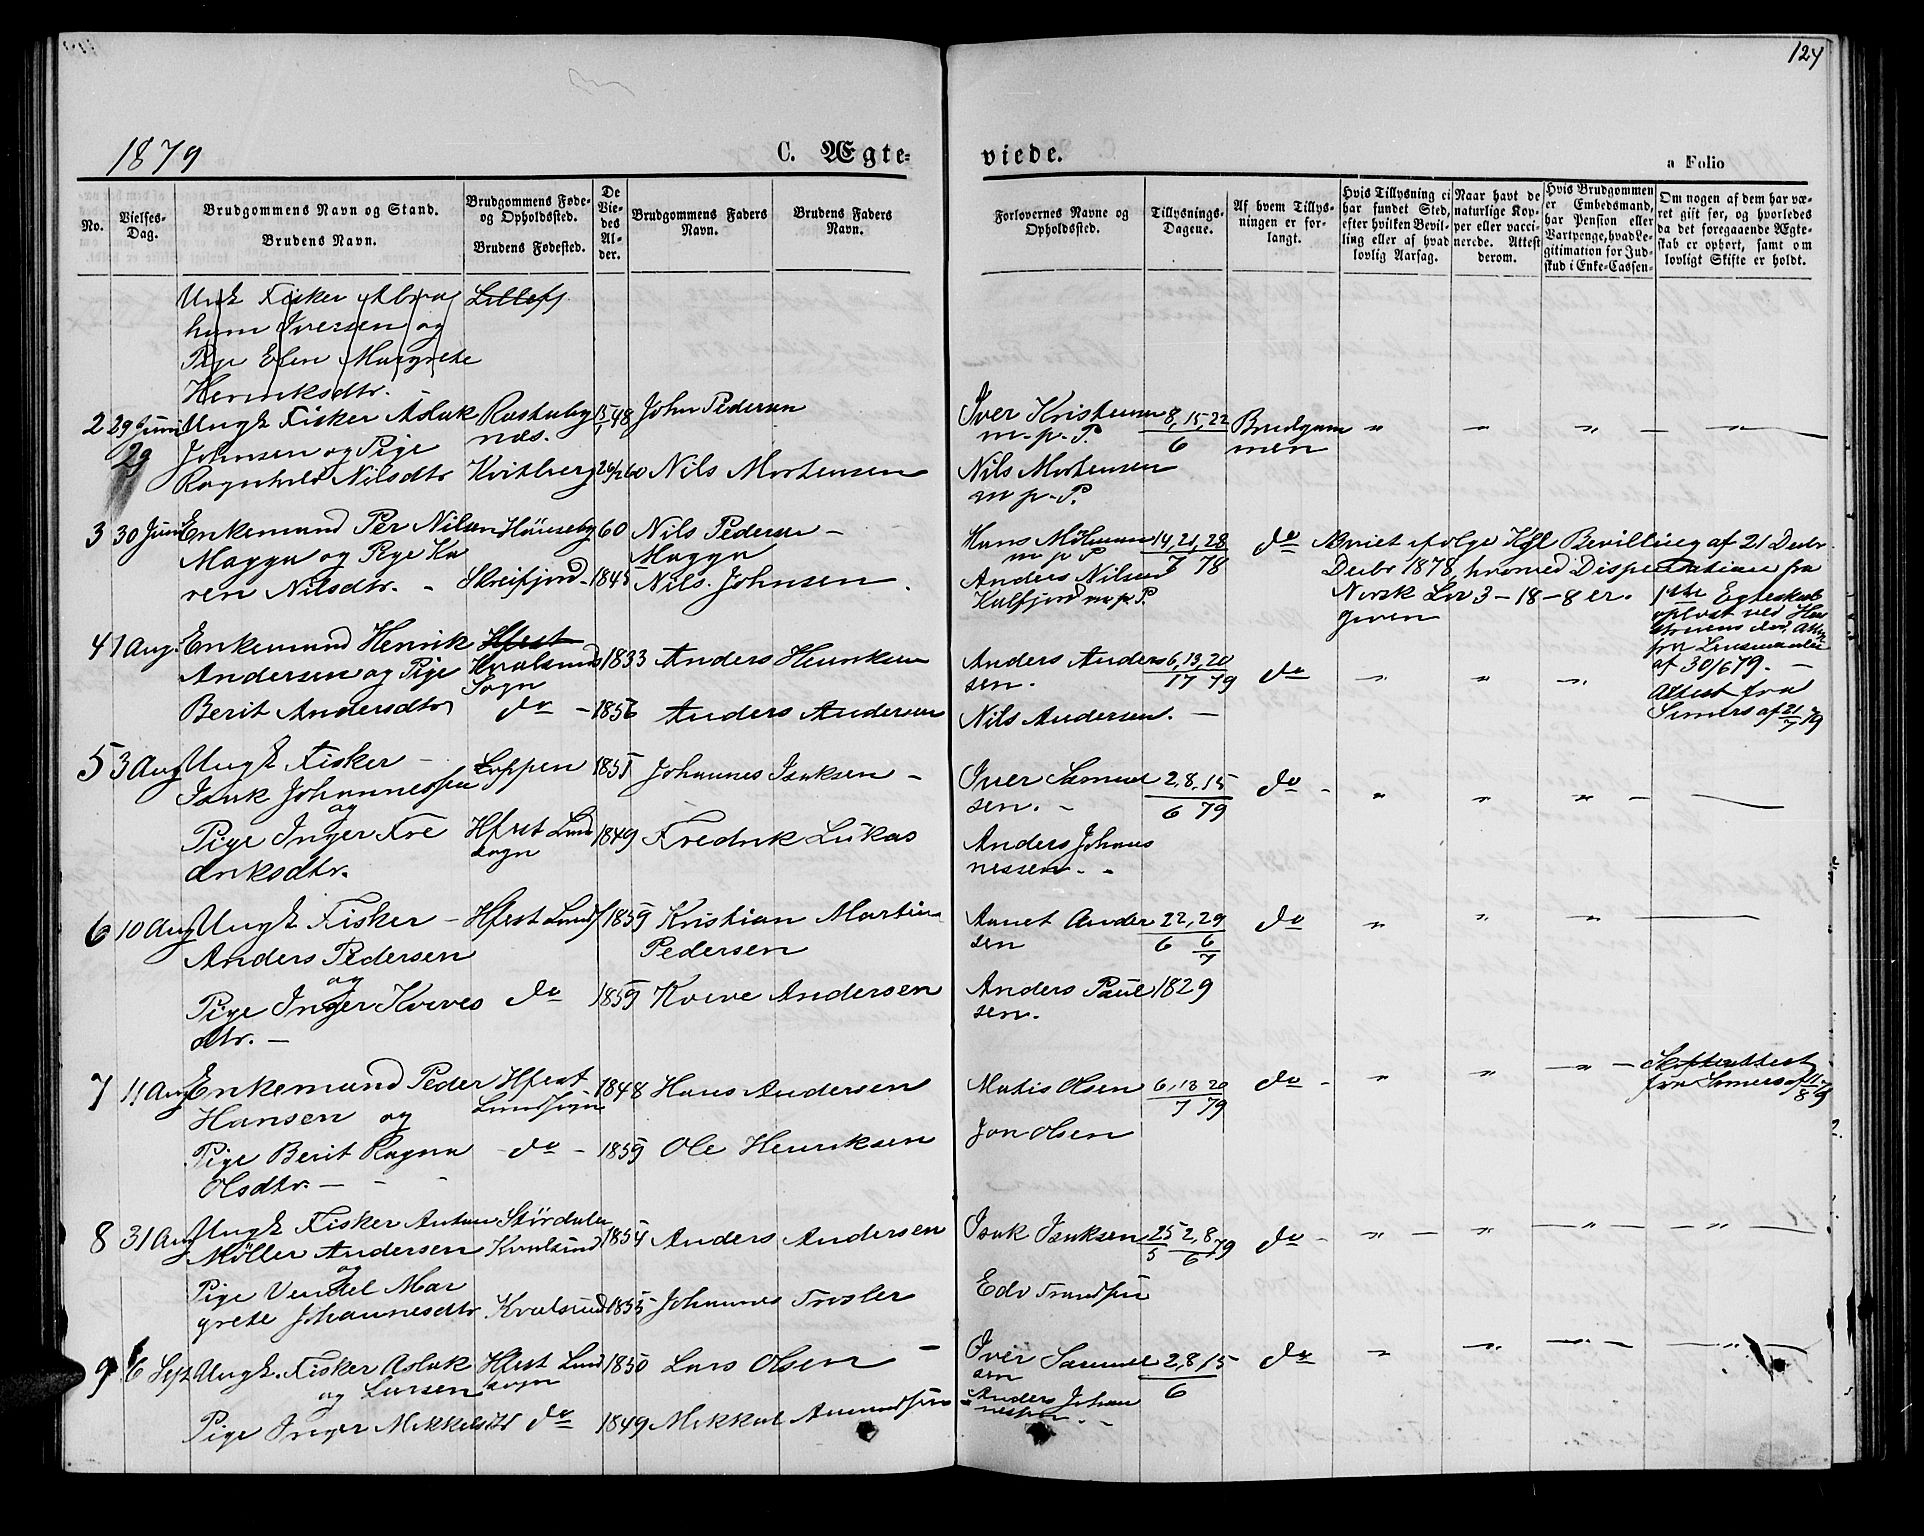 124
1879
C. Ægte-
viede.
a Folio
No.
Vielses-
Dag.
Brudgommens Navn og Stand.
Brudens Navn.
Brudgommens Føde-
og Opholdssted.
Brudens Fødested.
De
Vie-
des
Al-
der.
Brudgommens Faders
Navn.
Brudens Faders
Navn.
Forlovernes Navne og
Opholdssted.
Tillysnings-
Dagene.
Af hvem Tillys-
ningen er for-
langt.
Hvis Tillysning ei
har fundet Sted,
efter hvilken Bevil-
ling eller af hvad
lovlig Aarsag.
Naar havt de
naturlige Kop-
per eller vacci-
nerede. Attest
derom.
Hvis Brudgommen
er Embedsmand,
har Pension eller
Vartpenge, hvad Le-
gitimation for Ind-
skud i Enke-Cassen-
Om nogen af dem har væ-
ret gift før, og hvorledes
da det foregaaende Ægte-
skab er ophørt, samt om
lovligt Skifte er holdt.
Ungk Fisker Abra
ham Iversen og
Pige Elen Margrete
Henriksdtr.
2 29 Juni Ungk Fisker Aslak
29 Johnsen og Pige
Ragnhild Nilsdtr
næs.
Kvitberg
John Pedersen
Nils Mortensen
Iver Kristensen 8, 15, 22
m. p. P. 6
Nils Mortensen
m p. P.
Brudgom
men
3 30 Juni Enkemand Per Nilsen
Magga og Pige Ka
ren Nilsdtr. -
60
1845
Nils Pedersen -
Magga
Nils Johnsen
Hans 14, 21, 28
m p P 7 78
Anders Nilsen
Kalfjord m. p. P.
do
ifølge Kgl Bevilling af 21 Decbr
Decbr 1878, hvorved Dispensation fra
Norsk Lov 3-18-8 er
given
1ste Egteskab
opløst ved
af 30/6 79. -
4 1 Aug. Enkemand Henrik
Andersen og Pige
Berit Andersdtr
Hfest
Kvalsund
Sogn
do -
1833
1856
Anders Henriksen
Anders Andersen
Anders Ander 6, 13, 20
sen. 17 79
Nils Andersen. -
do
Attest fra
af 21/7 79
5 3 Aug Ungk Fisker -
Isak Johannessen
og
Pige Inger Fre
driksdtr.
Loppen
Hfest Lund
sogn
1855
1849
Johannes Isaksen -
Fredrik Lukas
Iver Samuel 2, 8, 15
sen. - 6 79
Anders Johan
nessen. -
do -
6 10 Aug Ungk Fisker -
Anders Pedersen
og
Pige Inger Kveves
dtr. -
Hfest Lunds
do
1859
1859
Kristian Martin
Pedersen
Kveve Andersen
Ander 22, 29
sen 6 6/7
Anders Paul 1829
sen.
do
7 11 Aug Enkemand Peder
Hansen og
Pige Berit Ragna
Olsdtr. -
Hfest
Lundsogn
- do -
1848
1859
Hans Andersen
Ole Henriksen
Matis Olsen 6, 13 20
7 79
Jon Olsen
do -
Skifteattest
fra af 11/8 79
8 31 Aug Ungk Fisker Anton
Møller Andersen
og
Pige Vendel Mar
grete Johannesdtr
Størdalen
Kvalsund
Kvalsund
1854
1855
Anders Andersen
Johannes Trosler
Isak Isaksen 25 2, 8
5 6 79
Edv
do -
9 6 Sept Ungk. Fisker Aslak
og Larsen
Pige Inger Mikkelsdtr
Hfest Lund
sogn
do
1850
1849
Lars Olsen -
Mikkel Amundsen
Iver Samuel 2, 8, 15
sen 6
Anders Johan
nessen. -
do